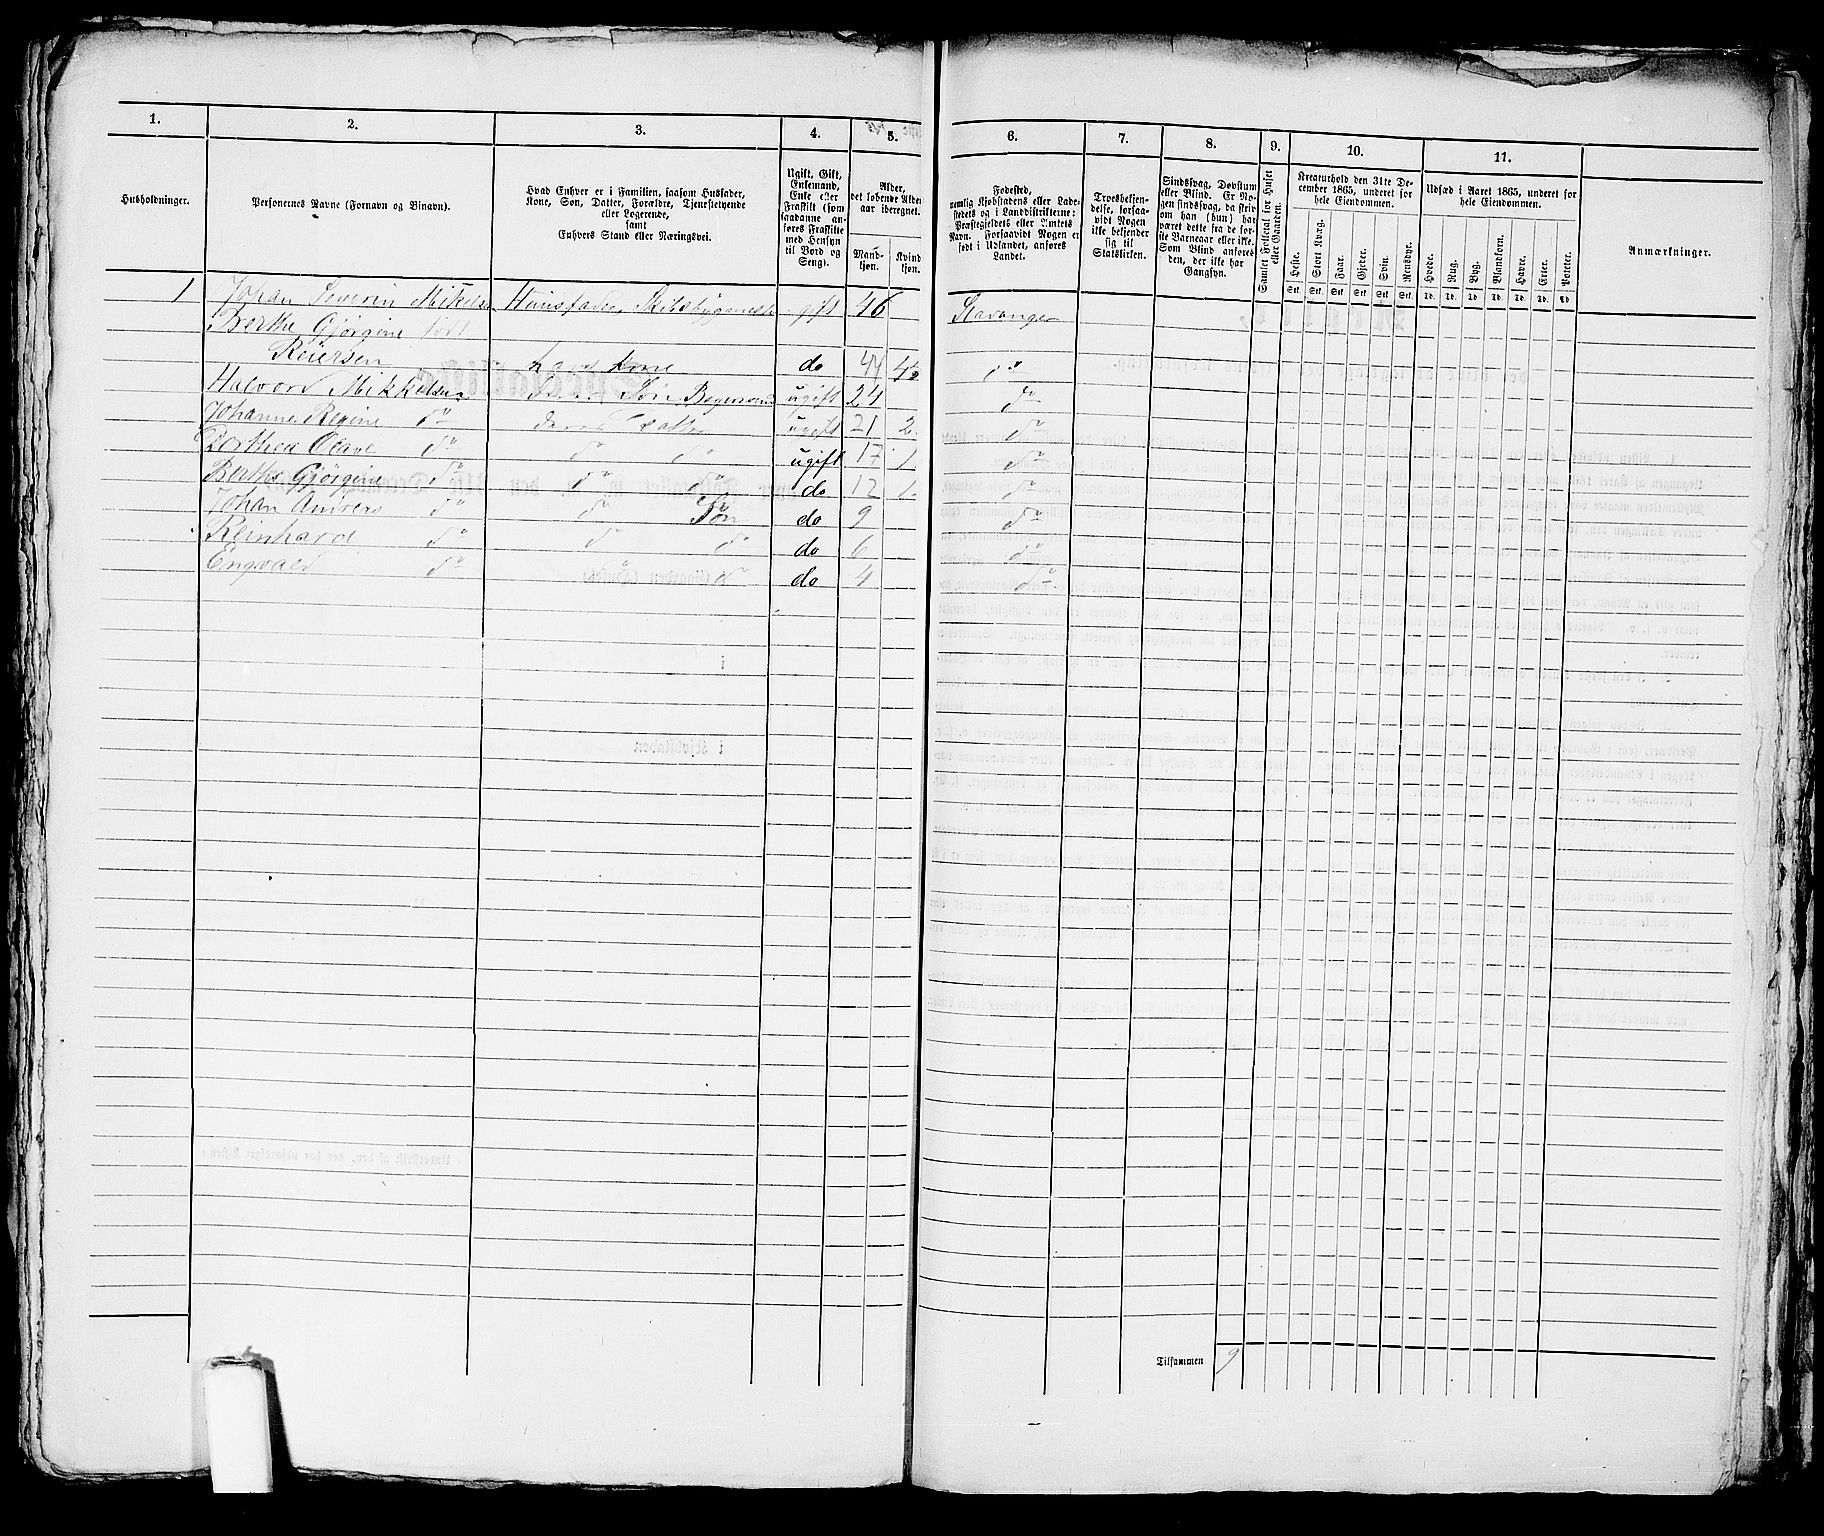 1. 2. 3. 4. 5. 6. 7. 8. 9. 10. 11.
Husholdninger.
Personernes Navne (Fornavn og Binavn).
Hvad Enhver er i Familien, saasom Husfader,
Kone, Søn, Datter, Forældre, Tjenestetyende
eller Logerende,
samt
Enhvers Stand eller Næringsvei.
Ugift, Gift,
Enkemand,
Enke eller
Fraskilt (som
saadanne an-
føres Fraskilte
med Hensyn
til Bord og
Seng).
Alder,
det løbende Alder
aar iberegnet.
Mand-
kjøn.
Kvind
kjøn.
Fødested,
nemlig Kjøbstadens eller Lade-
stedets og i Landdistrikterne:
Præstegjeldets eller Amtets
Navn. Forsaavidt Nogen er
født i Udlandet, anføres
Landet.
Troesbekjen-
delse, forsaa-
vidt Nogen
ikke bekjender
sig til
Statskirken.
Sindssvag, Døvstum
eller Blind. Er No-
gen sindssvag, da skriv
om han (hun) har
været dette fra de før-
ste Barneaar eller ikke.
Som Blind anføres
den, der ikke har
Gangsyn.
Samlet Folketal for Huset
eller Gaarden.
Kreaturhold den 31te De-
cember 1865, underet for
hele Eiendommen.
Heste. Stort Kvæg. Faar. Gjeder. Svin. Rensdyr.
Stk. Stk. Stk. Stk. Stk. Stk.
Udsæd i Aaret 1865, underet for
hele Eiendommen.
Hvede. Rug. Byg. Blandkorn. Havre. Erter. Poteter.
Td. Td. Td. Td. Td. Td. Td.
Anmærkninger.
1 Johan Severin Mikkelsen Huusfader, Skibsbygmester gift 46 Stavanger
Berthe Gjørgine født
Reiersen hans Kone do 44 do
Halvor Mikkelsen Søn ugift 24 do
Johanne Regine do deres Datter ugift 21 2 do
Dorthea Oleave do do do ugift 17 1 do
Berthe Gjørgine do do do do 12 1 do
Johan Anders do do Søn do 9 do
Reinhard do do do do 6 do
Engvald do do do 4 do
Tilsammen 9